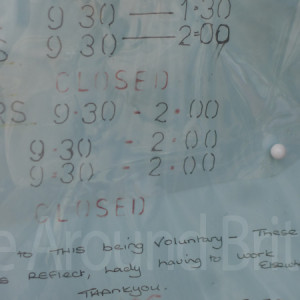 9 30 — 1:30
S. 9 30 — 2=00
CLOSED
RS. 9.30 - 2.00
9.30 - 2.00
9.30 - 2.00
CLOSED
e Around Bri
to THIS being Voluntary - These
REFLECT, having to work
THANKYOU.